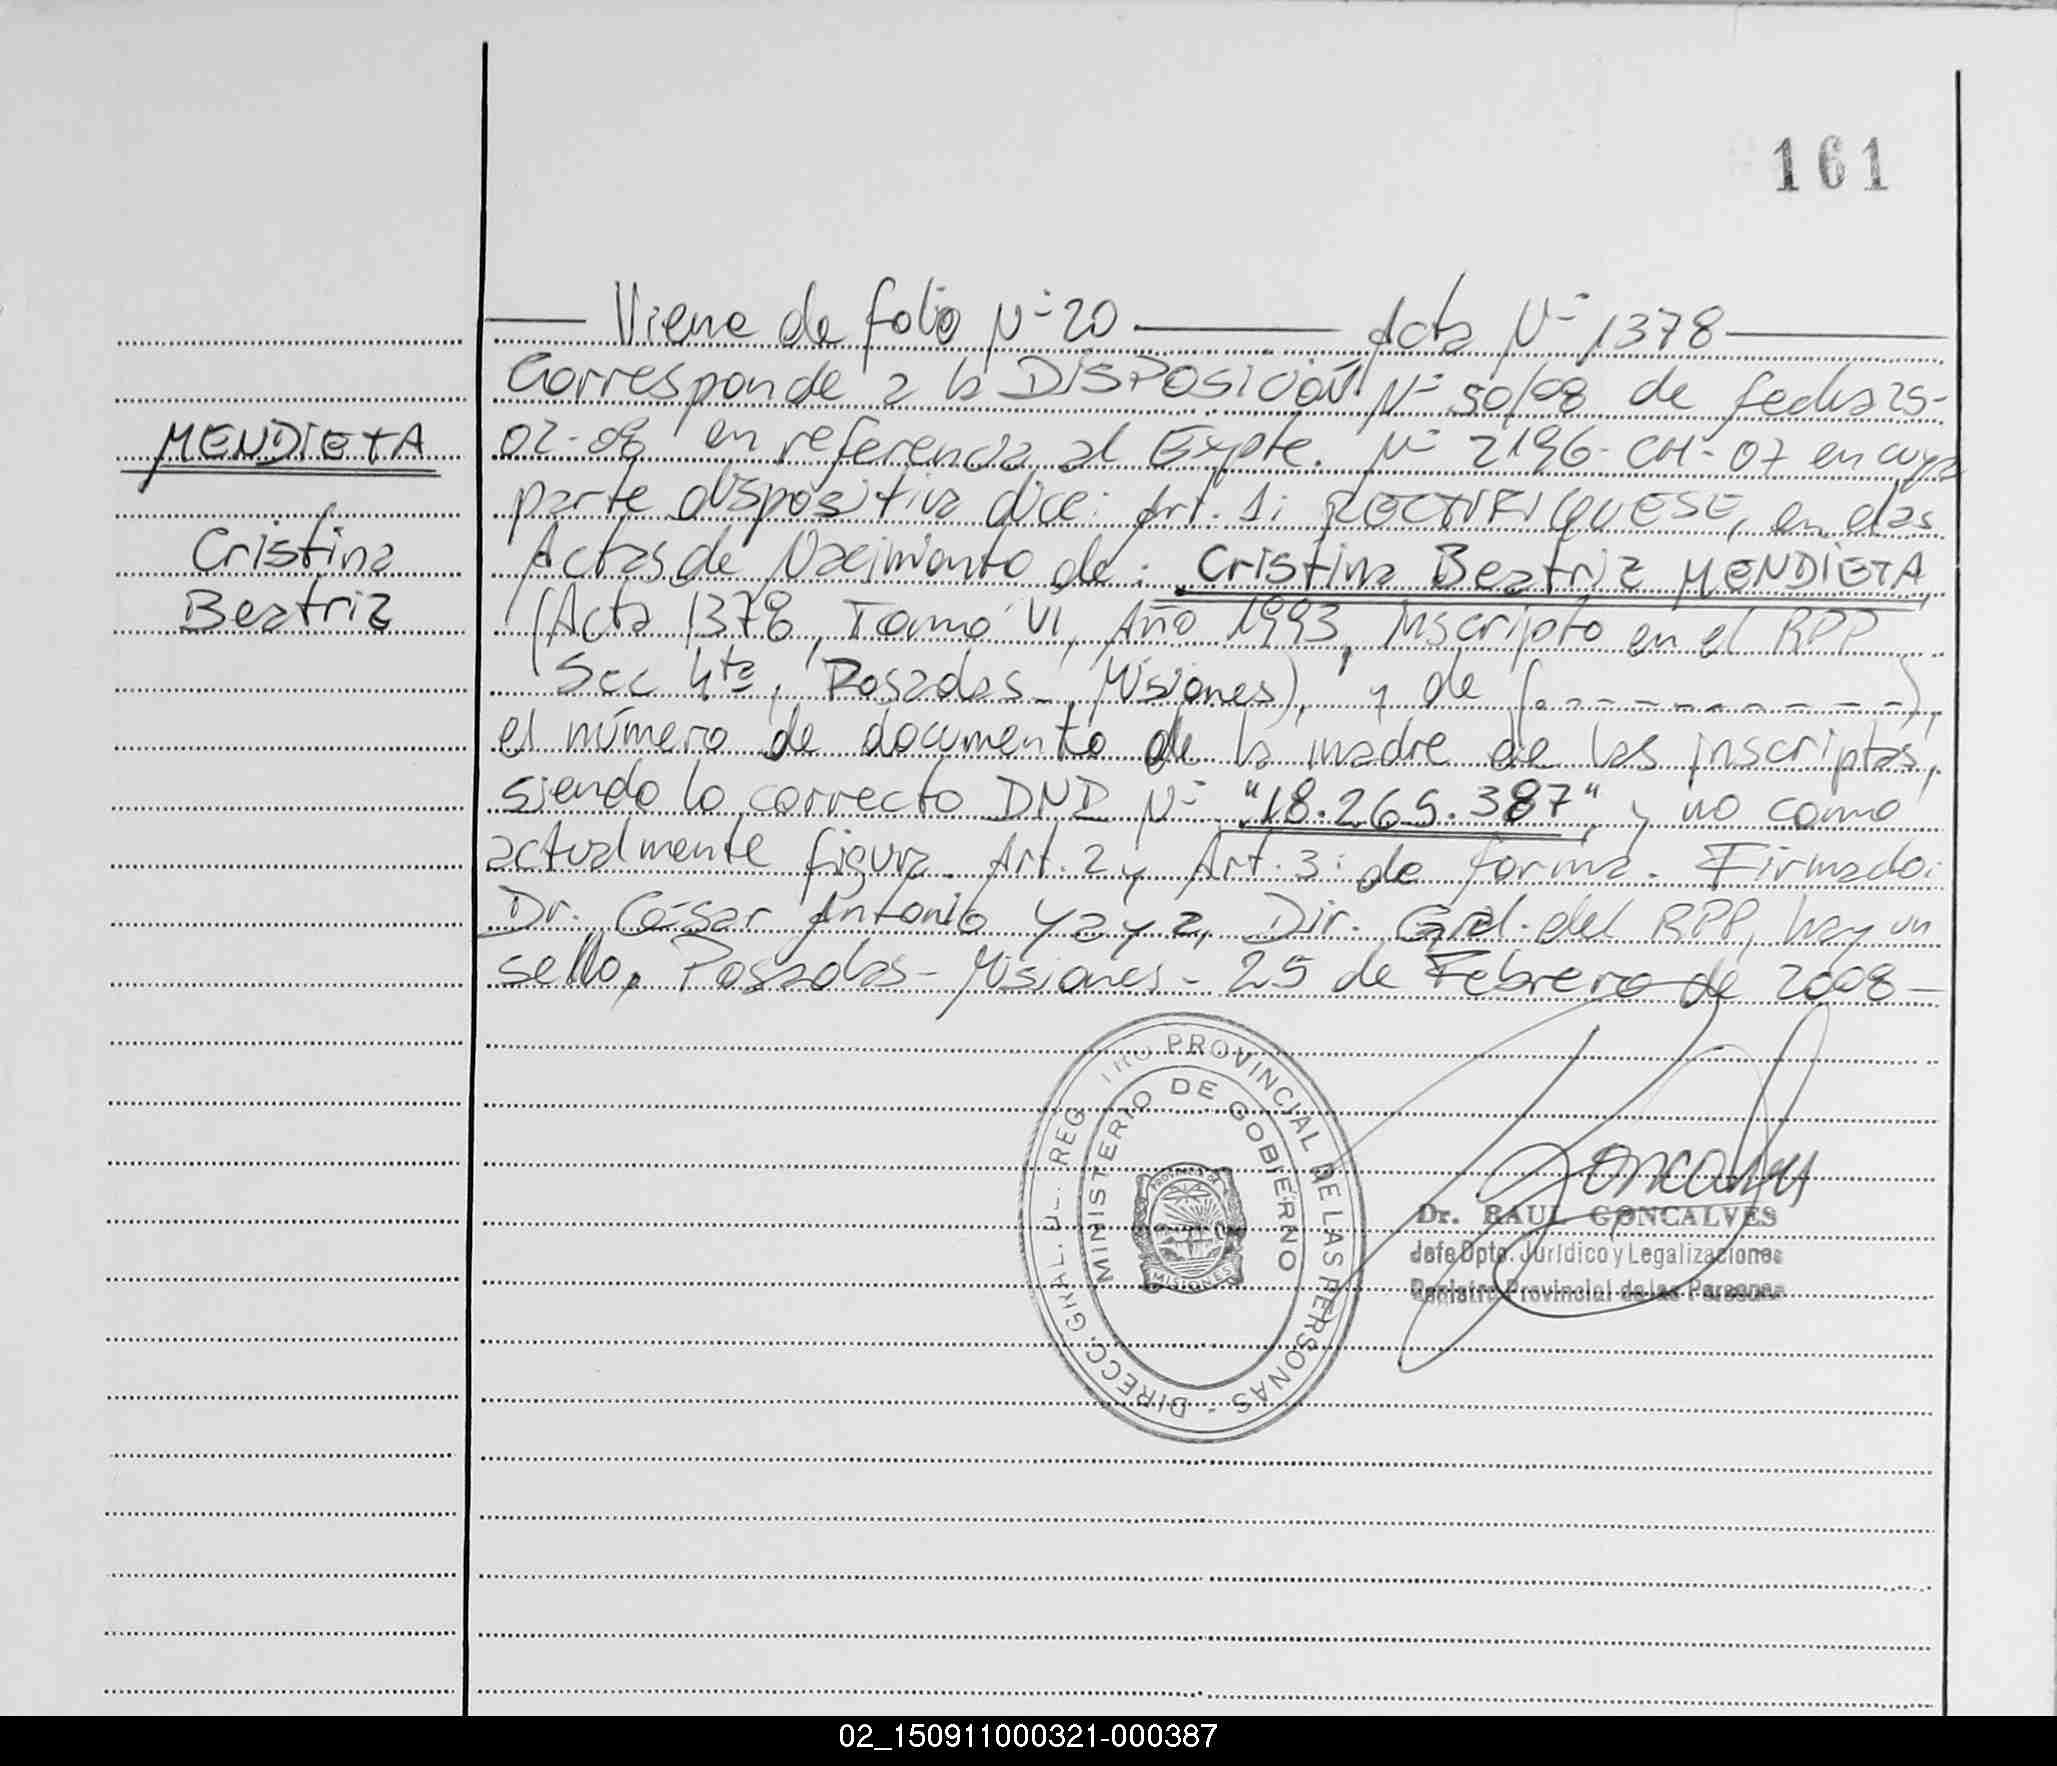 161
Viene de folio Nº 20 Acta Nº 1378
Corresponde a la DISPOSICIÓN Nº 50/08 de fecha 25-
MENDIETA
02-08 en referencia al Expte. Nº 2196-CH-07 en cuya
parte dispositiva dice: Art. 1: RECTIFIQUESE, en las
Cristina
Actas de Nacimiento de: Cristina Beatriz MENDIETA
Beatriz
(Acta 1378, Tomo VI, Año 1993, inscripto en el RPP
Sec 4ta, Posadas - Misiones), y de (- - - - - - - - - - -),
el número de documento de la madre de las inscriptas,
siendo lo correcto DNI Nº "18.265.387", y no como
actualmente figura. Art. 2 y Art. 3: de forma. Firmado:
Dr. César Antonio Yaya, Dir. Gral. del RPP, hay un
sello, Posadas - Misiones - 25 de Febrero de 2008 -
DIRECC. GRAL. DEL REG TRO PROVINCIAL DE LAS PERSONAS -
MINISTERIO DE GOBIERNO
PROVINCIA DE
MISIONES
Goncalves
Dr. RAUL GONCALVES
Jefe Dpto. Jurídico y Legalizaciones
Registro Provincial de las Personas
02_150911000321-000387